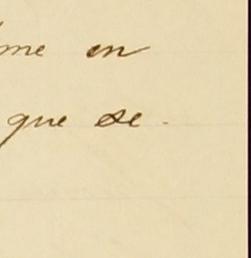 me en
que se